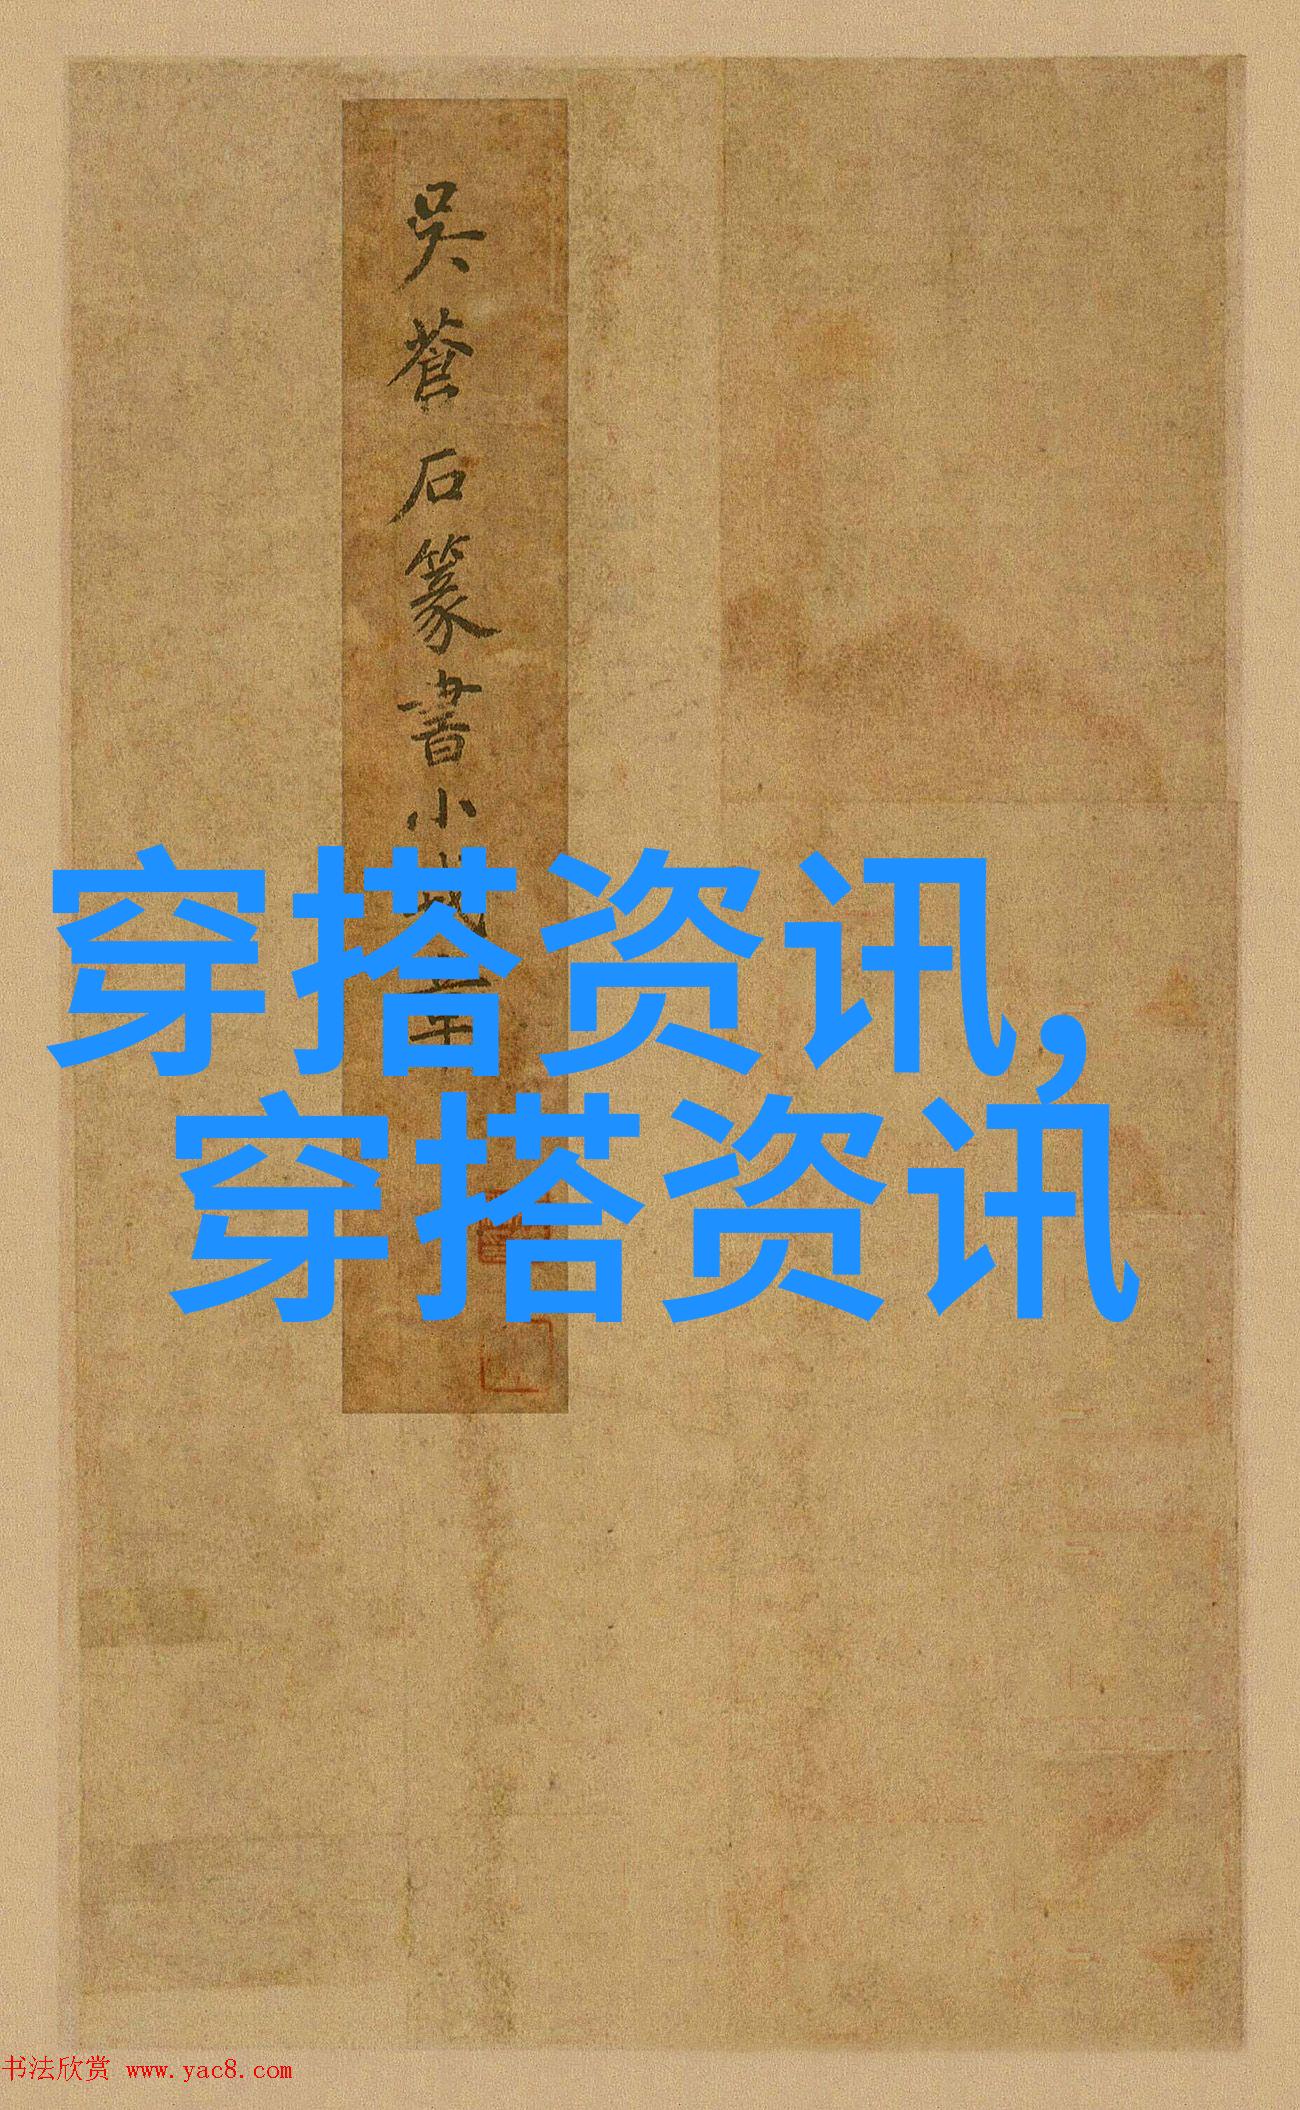 吳蒼石篆書小
穿搭资讯,
穿搭资讯
书法欣赏 www.yac8.com